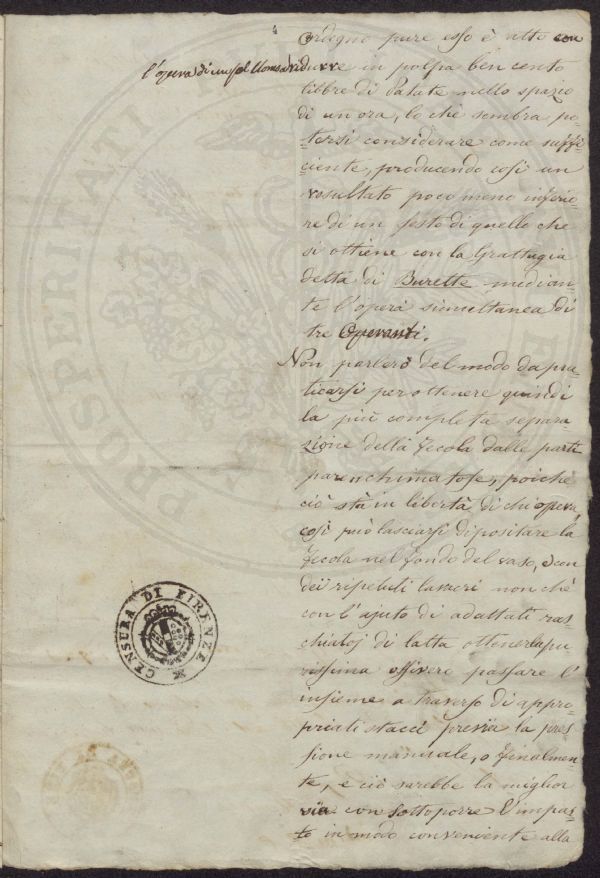 4
ordegno pure esso è atto con
l'opera di un sol Uomo a ridurre
durre in polpa ben cento
libbre di Patate nello spazio
di un ora, lo chè sembra po-
-tersi considerare come suffi-
-ciente, producendo così un
resultato poco meno inferio-
re di un sesto di quello che
si ottiene con la Grattugia
detta di Burette median-
te l'opera simultanea di
tre Operanti.
Non parlerò del modo da pra-
ticarsi per ottenere quindi
la più completa separa-
zione della Fecola dalle parti
parenchimatose, poichè
ciò stà in libertà di chi opera,
così può lasciarsi depositare la
Fecola nel fondo del vaso, e con
dei ripetuti lavacri non chè
con l'ajuto di adattati ras-
chiatoj di latta ottenerla pu-
rissima ossivero passare l'
insieme a traverso di appro
priati stacci previa la pres-
sione manuale, o finalmen-
te, e ciò sarebbe la miglior
via con sottoporre l'impas-
to in modo conveniente alla
CENSURA DI FIRENZE
PROSPERITATI